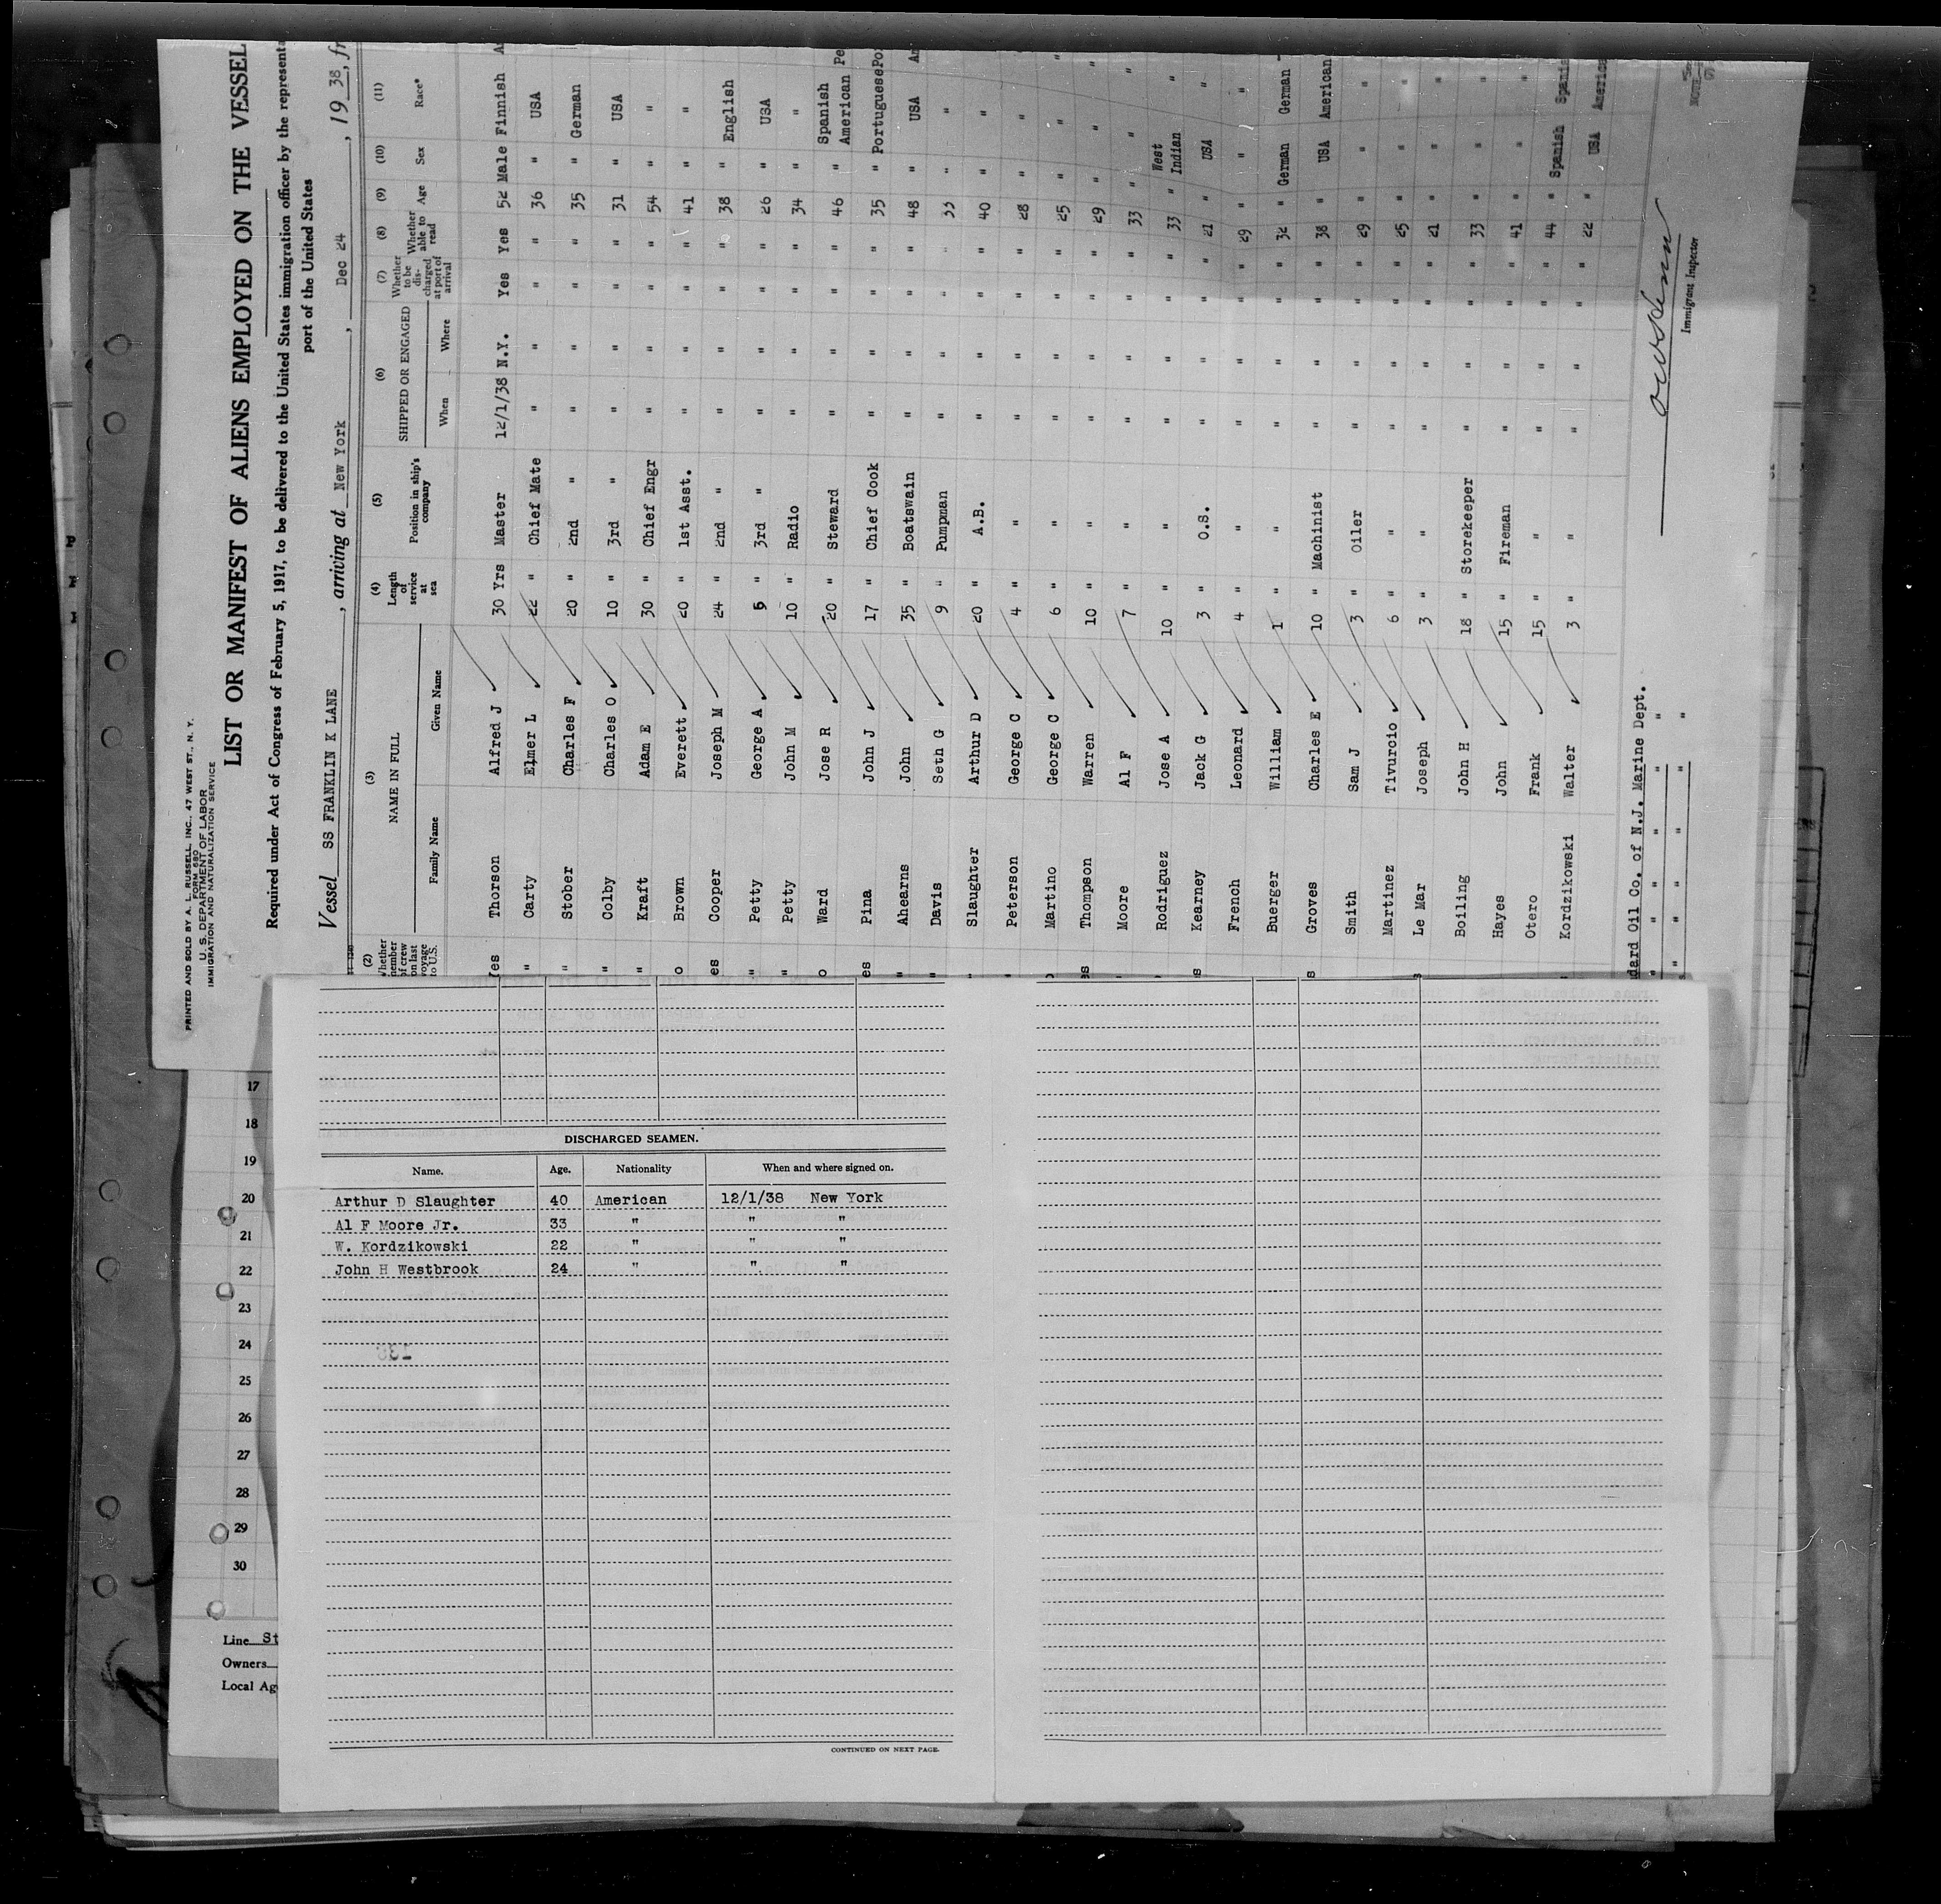 PRINTED AND SOLD BY A. L. RUSSELL, INC., 47 WEST ST., N. Y.
FORM 680
U. S. DEPARTMENT OF LABOR
IMMIGRATION AND NATURALIZATION SERVICE
LIST OR MANIFEST OF ALIENS EMPLOYED ON THE VESSEL
Required under Act of Congress of February 5, 1917, to be delivered to the United States immigration officer by the represent
port of the United States
Vessel SS FRANKLIN K LANE, arriving at New York, Dec 24, 1938, fr
(2) (3) (4) (5) (6) (7) (8) (9) (10) (11)
Whether member of crew on last voyage to U.S. NAME IN FULL Family Name Given Name Length of service at sea Position in ship's company SHIPPED OR ENGAGED When Where Whether to be discharged at port of arrival Whether able to read Age Sex Race*
es Thorson Alfred J 30 Yrs Master 12/1/38 N.Y. Yes Yes 52 Male Finnish
" Carty Elmer L 22 " Chief Mate " " " " 36 " USA
" Stober Charles F 20 " 2nd " " " " " 35 " German
" Colby Charles O 10 " 3rd " " " " " 31 " USA
" Kraft Adam E 30 " Chief Engr " " " " 54 " "
o Brown Everett 20 " 1st Asst. " " " " 41 " "
es Cooper Joseph M 24 " 2nd " " " " " 38 " English
" Petty George A 5 " 3rd " " " " " 26 " USA
" Petty John M 10 " Radio " " " " 34 " "
o Ward Jose R 20 " Steward " " " " 46 " Spanish American Pe
es Pina John J 17 " Chief Cook " " " " 35 " Portuguese Po
" Ahearns John 35 " Boatswain " " " " 48 " USA Am
" Davis Seth G 9 " Pumpman " " " " 33 " "
" Slaughter Arthur D 20 " A.B. " " " " 40 " "
" Peterson George C 4 " " " " " " 28 " "
Martino George C 6 " " " " " " 25 " " "
es Thompson Warren 10 " " " " " " 29 " " "
" Moore Al F 7 " " " " " " 33 " " "
Rodriguez Jose A 10 " " " " " " 33 " West Indian "
s Kearney Jack G 3 " O.S. " " " " 21 " USA "
French Leonard 4 " " " " " " 29 " " "
Buerger William 1 " " " " " " 32 " German German
s Groves Charles E 10 " Machinist " " " " 38 " USA American
Smith Sam J 3 " Oiler " " " " 29 " " "
Martinez Tivurcio 6 " " " " " " 25 " " "
Le Mar Joseph 3 " " " " " " 21 " " "
Boiling John H 18 " Storekeeper " " " " 33 " " "
Hayes John 15 " Fireman " " " " 41 " " "
Otero Frank 15 " " " " " " 44 " Spanish Spanis
Kordzikowski Walter 3 " " " " " " 22 " USA America
dard Oil Co. of N.J. Marine Dept.
" " " " " "
" " " "
Immigrant Inspector
17
18
19
20
21
22
23
24
25
26
27
28
29
30
Line St
Owners
Local Ag
DISCHARGED SEAMEN.
Name. Age. Nationality When and where signed on.
Arthur D Slaughter 40 American 12/1/38 New York
Al F Moore Jr. 33 " " "
W. Kordzikowski 22 " " "
John H Westbrook 24 " " "
CONTINUED ON NEXT PAGE.